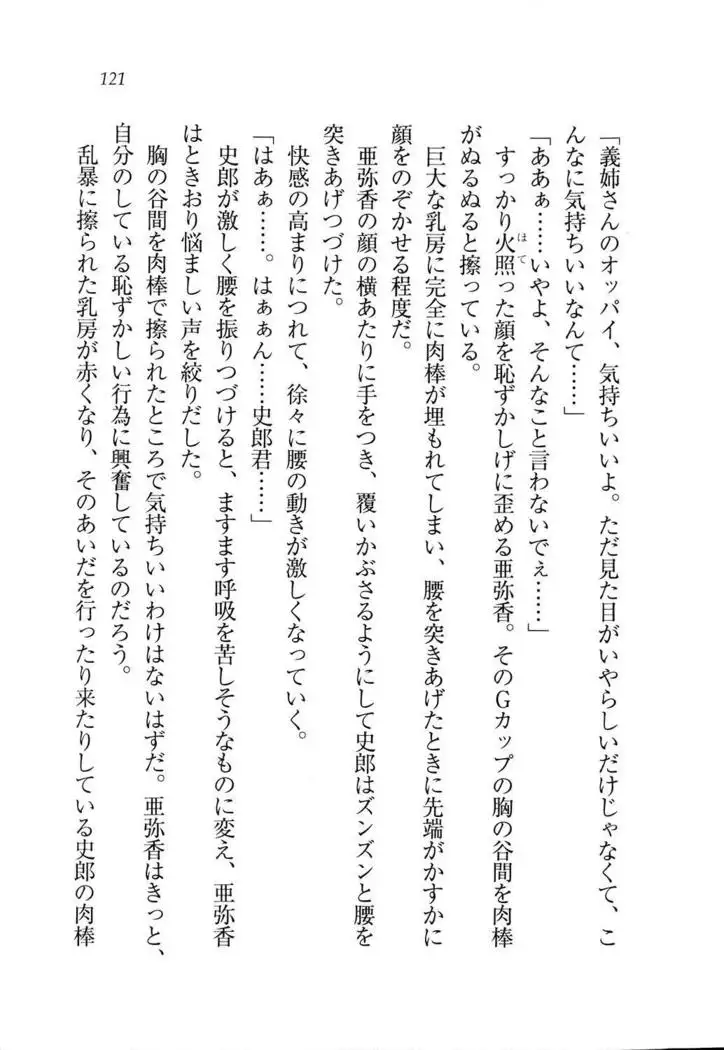 121
「義姉さんのオッパイ、気持ちいいよ。ただ見た目がいやらしいだけじゃなくて、こ
んなに気持ちいいなんて……」
「ああぁ……いやよ、そんなこと言わないでぇ……」
すっかり火照った顔を恥ずかしげに歪める亜弥香。そのGカップの胸の谷間を肉棒
がぬるぬると擦っている。
巨大な乳房に完全に肉棒が埋もれてしまい、腰を突きあげたときに先端がかすかに
顔をのぞかせる程度だ。
亜弥香の顔の横あたりに手をつき、覆いかぶさるようにして史郎はズンズンと腰を
突きあげつづけた。
快感の高まりにつれて、徐々に腰の動きが激しくなっていく。
「はあぁ……。はぁぁん……史郎君……」
史郎が激しく腰を振りつづけると、ますます呼吸を苦しそうなものに変え、亜弥香
はときおり悩ましい声を絞りだした。
胸の谷間を肉棒で擦られたところで気持ちいいわけはないはずだ。亜弥香はきっと、
自分のしている恥ずかしい行為に興奮しているのだろう。
乱暴に擦られた乳房が赤くなり、そのあいだを行ったり来たりしている史郎の肉棒